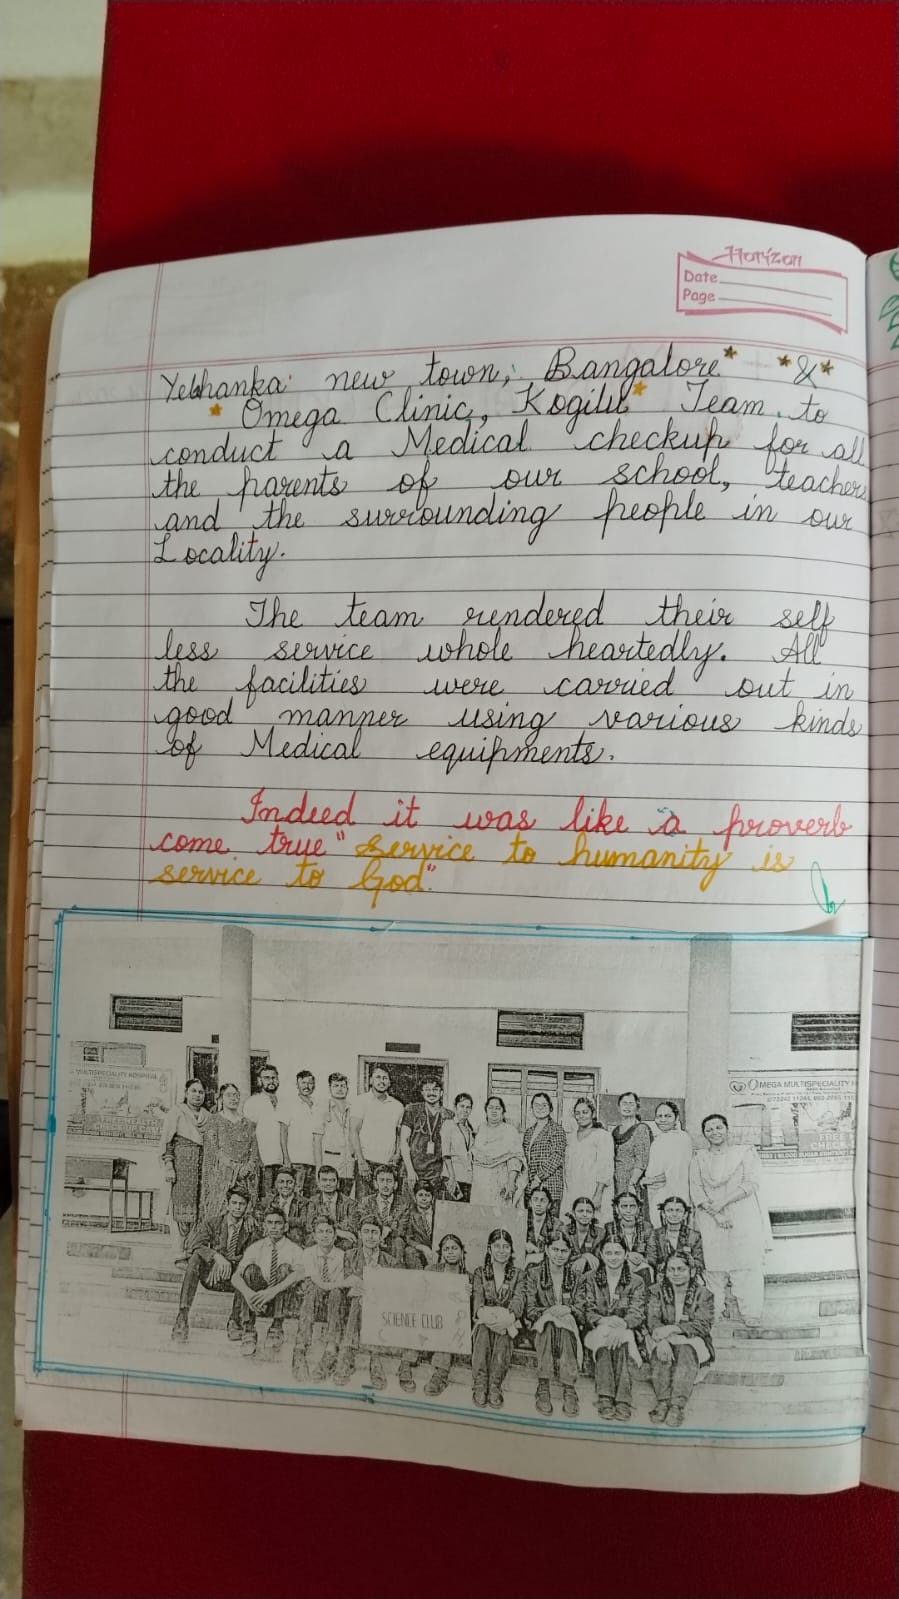 Horizon
Date
Page
Yelahanka new town, Bangalore* *&*
* Omega Clinic, Kogilu* Team to
conduct a Medical checkup for all
the parents of our school, teachers
and the surrounding people in our
Locality.
The team rendered their self
less service whole heartedly. All
the facilities were carried out in
good manner using various kinds
of Medical equipments.
Indeed it was like a proverb
come true "Service to humanity is
service to God".
MULTISPECIALITY HOSPITAL
FREE HEALTH
CHECKUP CAMP
OMEGA MULTISPECIALITY H
FREE
CHECK
SCIENCE CLUB